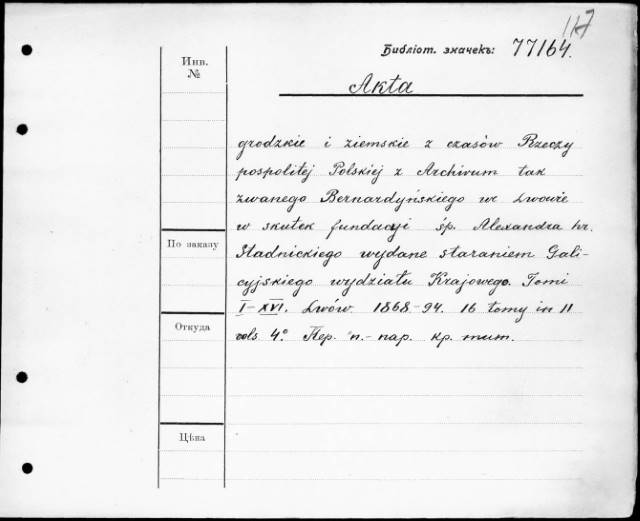 117
Библіот. значекъ: 77164.
Инв.
№
Akta
grodzkie i ziemskie z czasów Rzeczy
pospolitej Polskiej z Archivum tak
zwanego Bernardyńskiego we Lwowie
w skutek fundacyi śp. Alexandra hr.
По заказу
Stadnickiego wydane staraniem Gali-
cyjskiego wydziału Krajowego. Tomi
I-XVI. Lwów. 1868-94. 16 tomy in 11
Откуда
vols 4º. Пер. п.-пар. кр. тит.
Цѣна